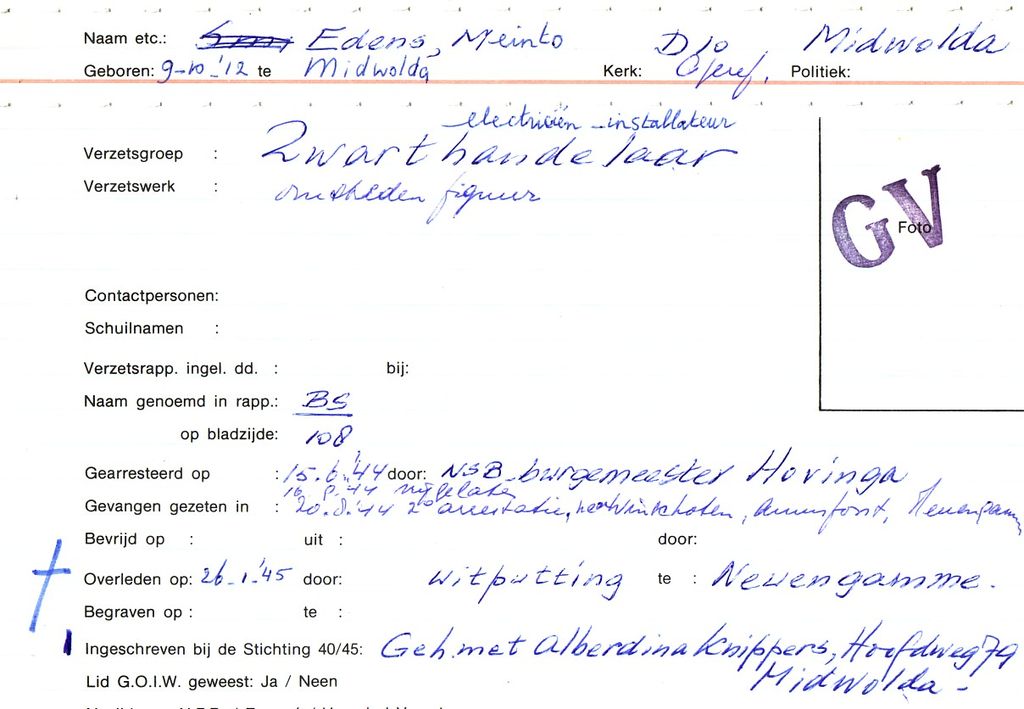 Naam etc.: Edens, Meinto D70, Midwolda
Geboren: 9-10-'12 te Midwolda Kerk: Geref. Politiek:
electriciën-installateur
Verzetsgroep : Zwarthandelaar
Verzetswerk : omstreden figuur
GV
Foto
Contactpersonen:
Schuilnamen :
Verzetsrapp. ingel. dd. : bij:
Naam genoemd in rapp.: BS
op bladzijde: 108
Gearresteerd op : 15.6.'44 door: NSB-burgemeester Hovinga
16.8.'44 vrijgelaten
Gevangen gezeten in : 20.8.'44 2e arrestatie, naar Winschoten, Amersfoort, Neuengamme
Bevrijd op : uit : door:
Overleden op: 26-1-'45 door: uitputting te : Neuengamme.
Begraven op : te :
Ingeschreven bij de Stichting 40/45: Geh. met Alberdina Knippers, Hoofdweg 79
Midwolda-
Lid G.O.I.W. geweest: Ja / Neen